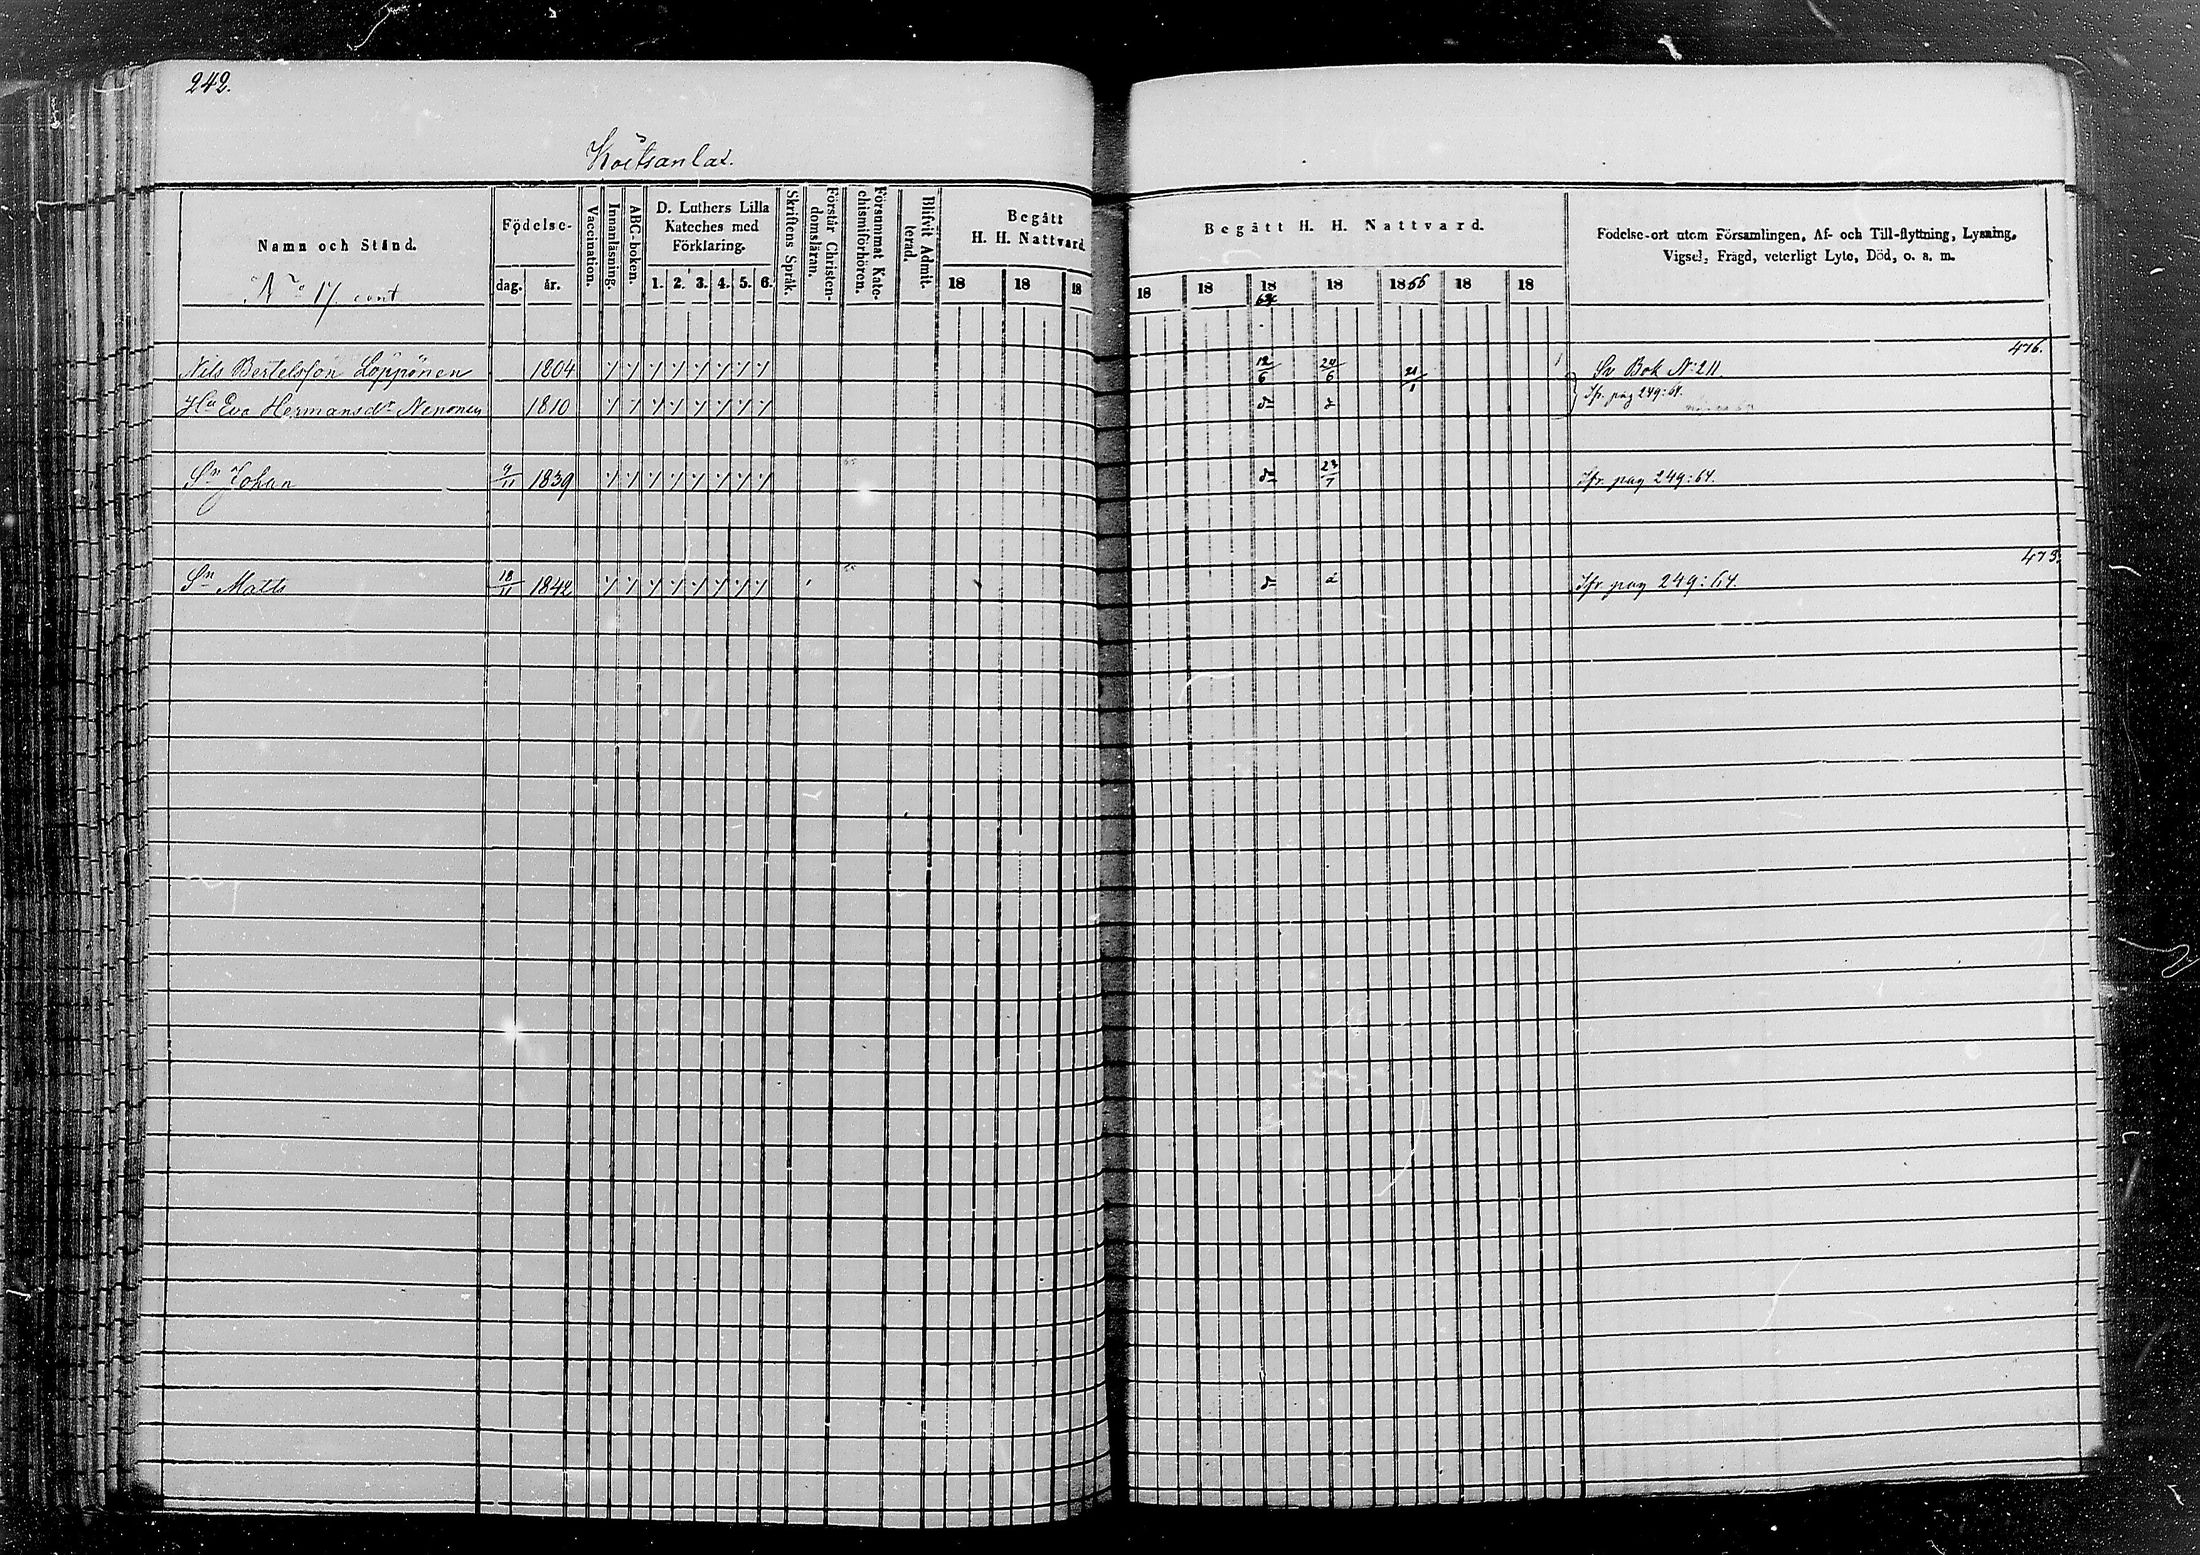 242.
Koitsanlax.
Namn och Stånd.
Födelse-
dag. år.
Vaccination.
Innanläsning.
ABC-boken.
D. Luthers Lilla
Kateches med
Förklaring.
1. 2. 3. 4. 5. 6.
Skriftens Språk.
Förstår Christen-
domsläran.
Försummat Kate-
chismiförhören.
Blifvit Admit-
terad.
Begått
H. H. Nattvard.
18 18 18
Begått H. H. Nattvard.
18 18 1864 18 1866 18 18
Födelse-ort utom Församlingen, Af- och Till-flyttning, Lysning,
Vigsel, Frägd, veterligt Lyte, Död, o. s. m.
No 17 cont
476.
Nils Bertelsson Löppönen 1804 12/6 24/6 21/1 Sv Bok N:211
Hu Eva Hermansdr Nenonen 1810 Jfr. pag 249:64.
Sn Johan 9/11 1839 Jfr. pag 249:64.
473.
Sn Matts 18/11 1842 Jfr. pag 249:64.